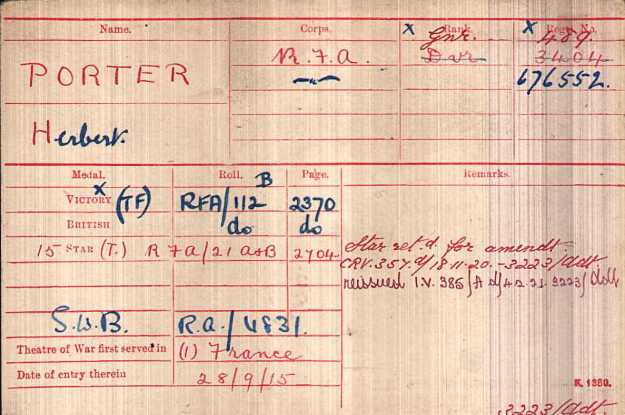 Name. Corps. Rank. Regtl. No.
x Gnr. x 489
PORTER R.F.A. Dvr 3404
676552.
Herbert.
Medal. Roll. Page. Remarks.
B
x
VICTORY (TF) RFA/112 2370
BRITISH do do
15 STAR (T.) R 7 A/21 A&B 2704 Star ret.d. for amendt.
CRV. 357. d/18.11.20. - 3223/Adt.
reissued I.V. 385/ d/4.2.21. 3223/
S.W.B. R.a./4831.
Theatre of War first served in (1) France
Date of entry therein 28/9/15
K. 1380.
3223/Adt.